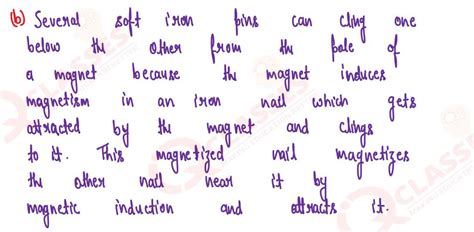 (b) Several soft iron pins can cling one
below the other from the pole of
a magnet because the magnet induces
magnetism in an iron nail which gets
attracted by the magnet and clings
to it. This magnetized nail magnetizes
the other nail near it by
magnetic induction and attracts it.